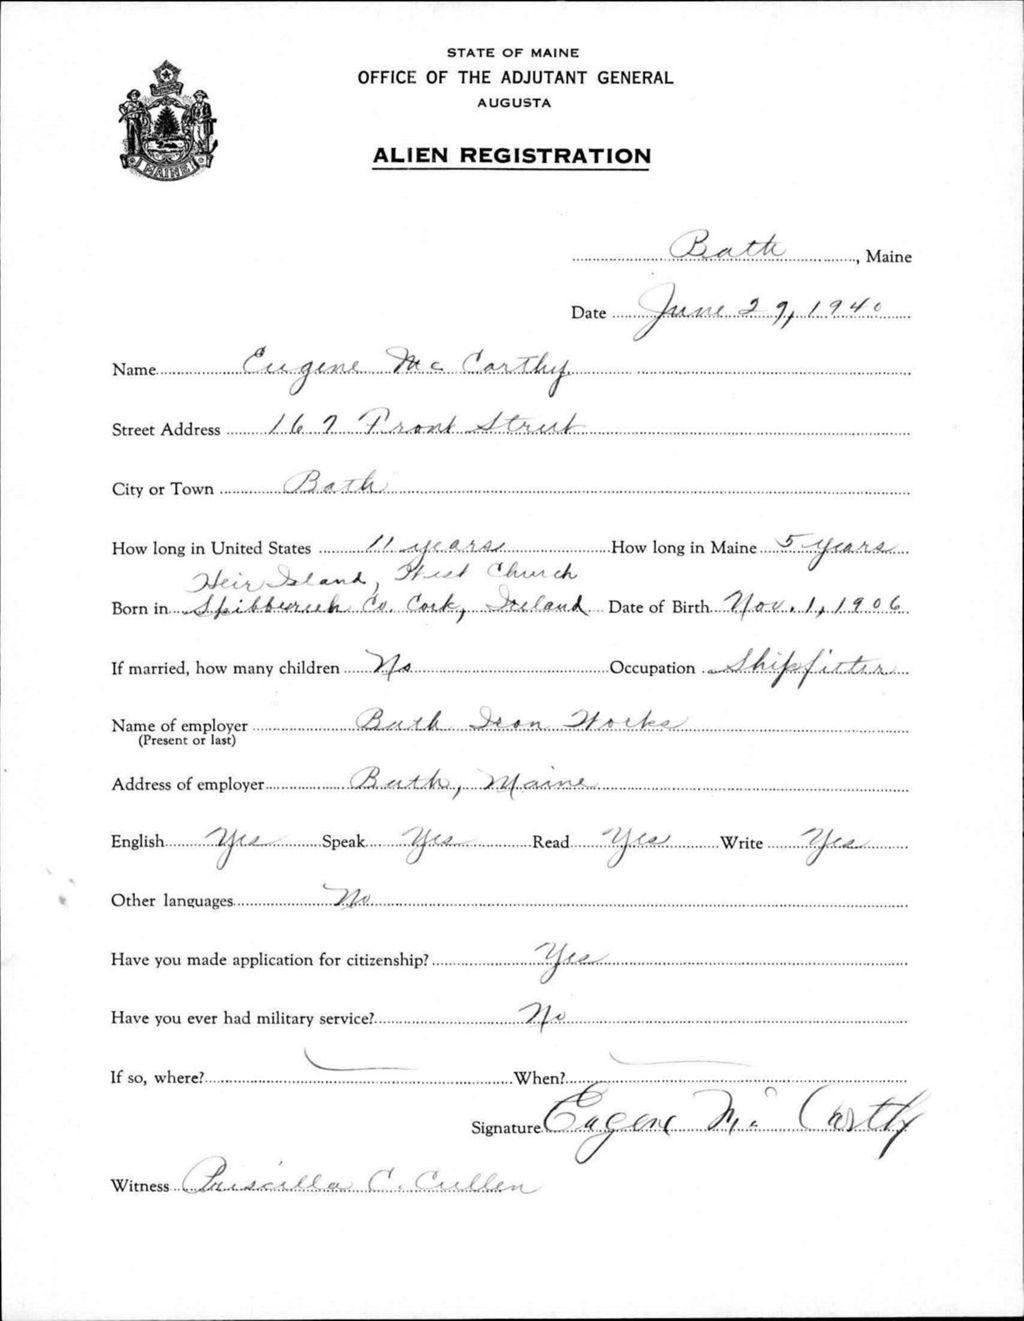 STATE OF MAINE
OFFICE OF THE ADJUTANT GENERAL
AUGUSTA
ALIEN REGISTRATION
MAINE
Bath, Maine
Date June 29, 1940
Name Eugene Mc Carthy
Street Address 167 Front Street
City or Town Bath
How long in United States 11 years How long in Maine 5 years
Heir Island, West Church
Born in Skibbereen Co. Cork, Ireland Date of Birth Nov. 1, 1906
If married, how many children No Occupation Shipfitter
Name of employer Bath Iron Works
(Present or last)
Address of employer Bath, Maine
English Yes Speak Yes Read Yes Write Yes
Other languages No
Have you made application for citizenship? Yes
Have you ever had military service? No
If so, where? When?
Signature Eugene Mc Carthy
Witness Priscilla C. Cullen